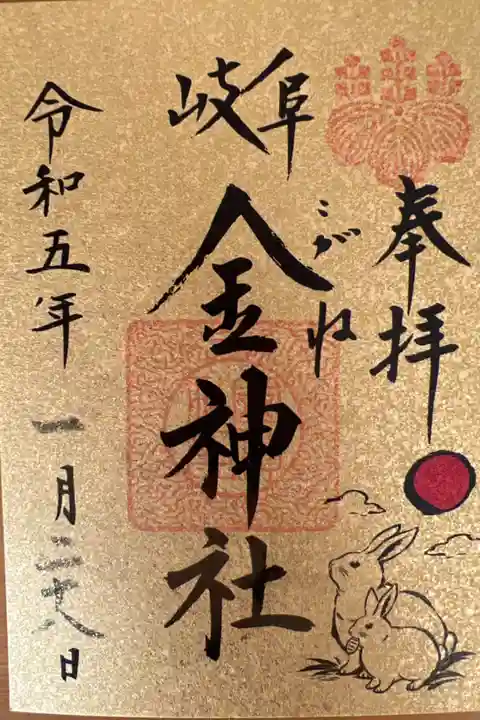 奉拝
岐阜
こがね
金神社
令和五年
一月二十八日